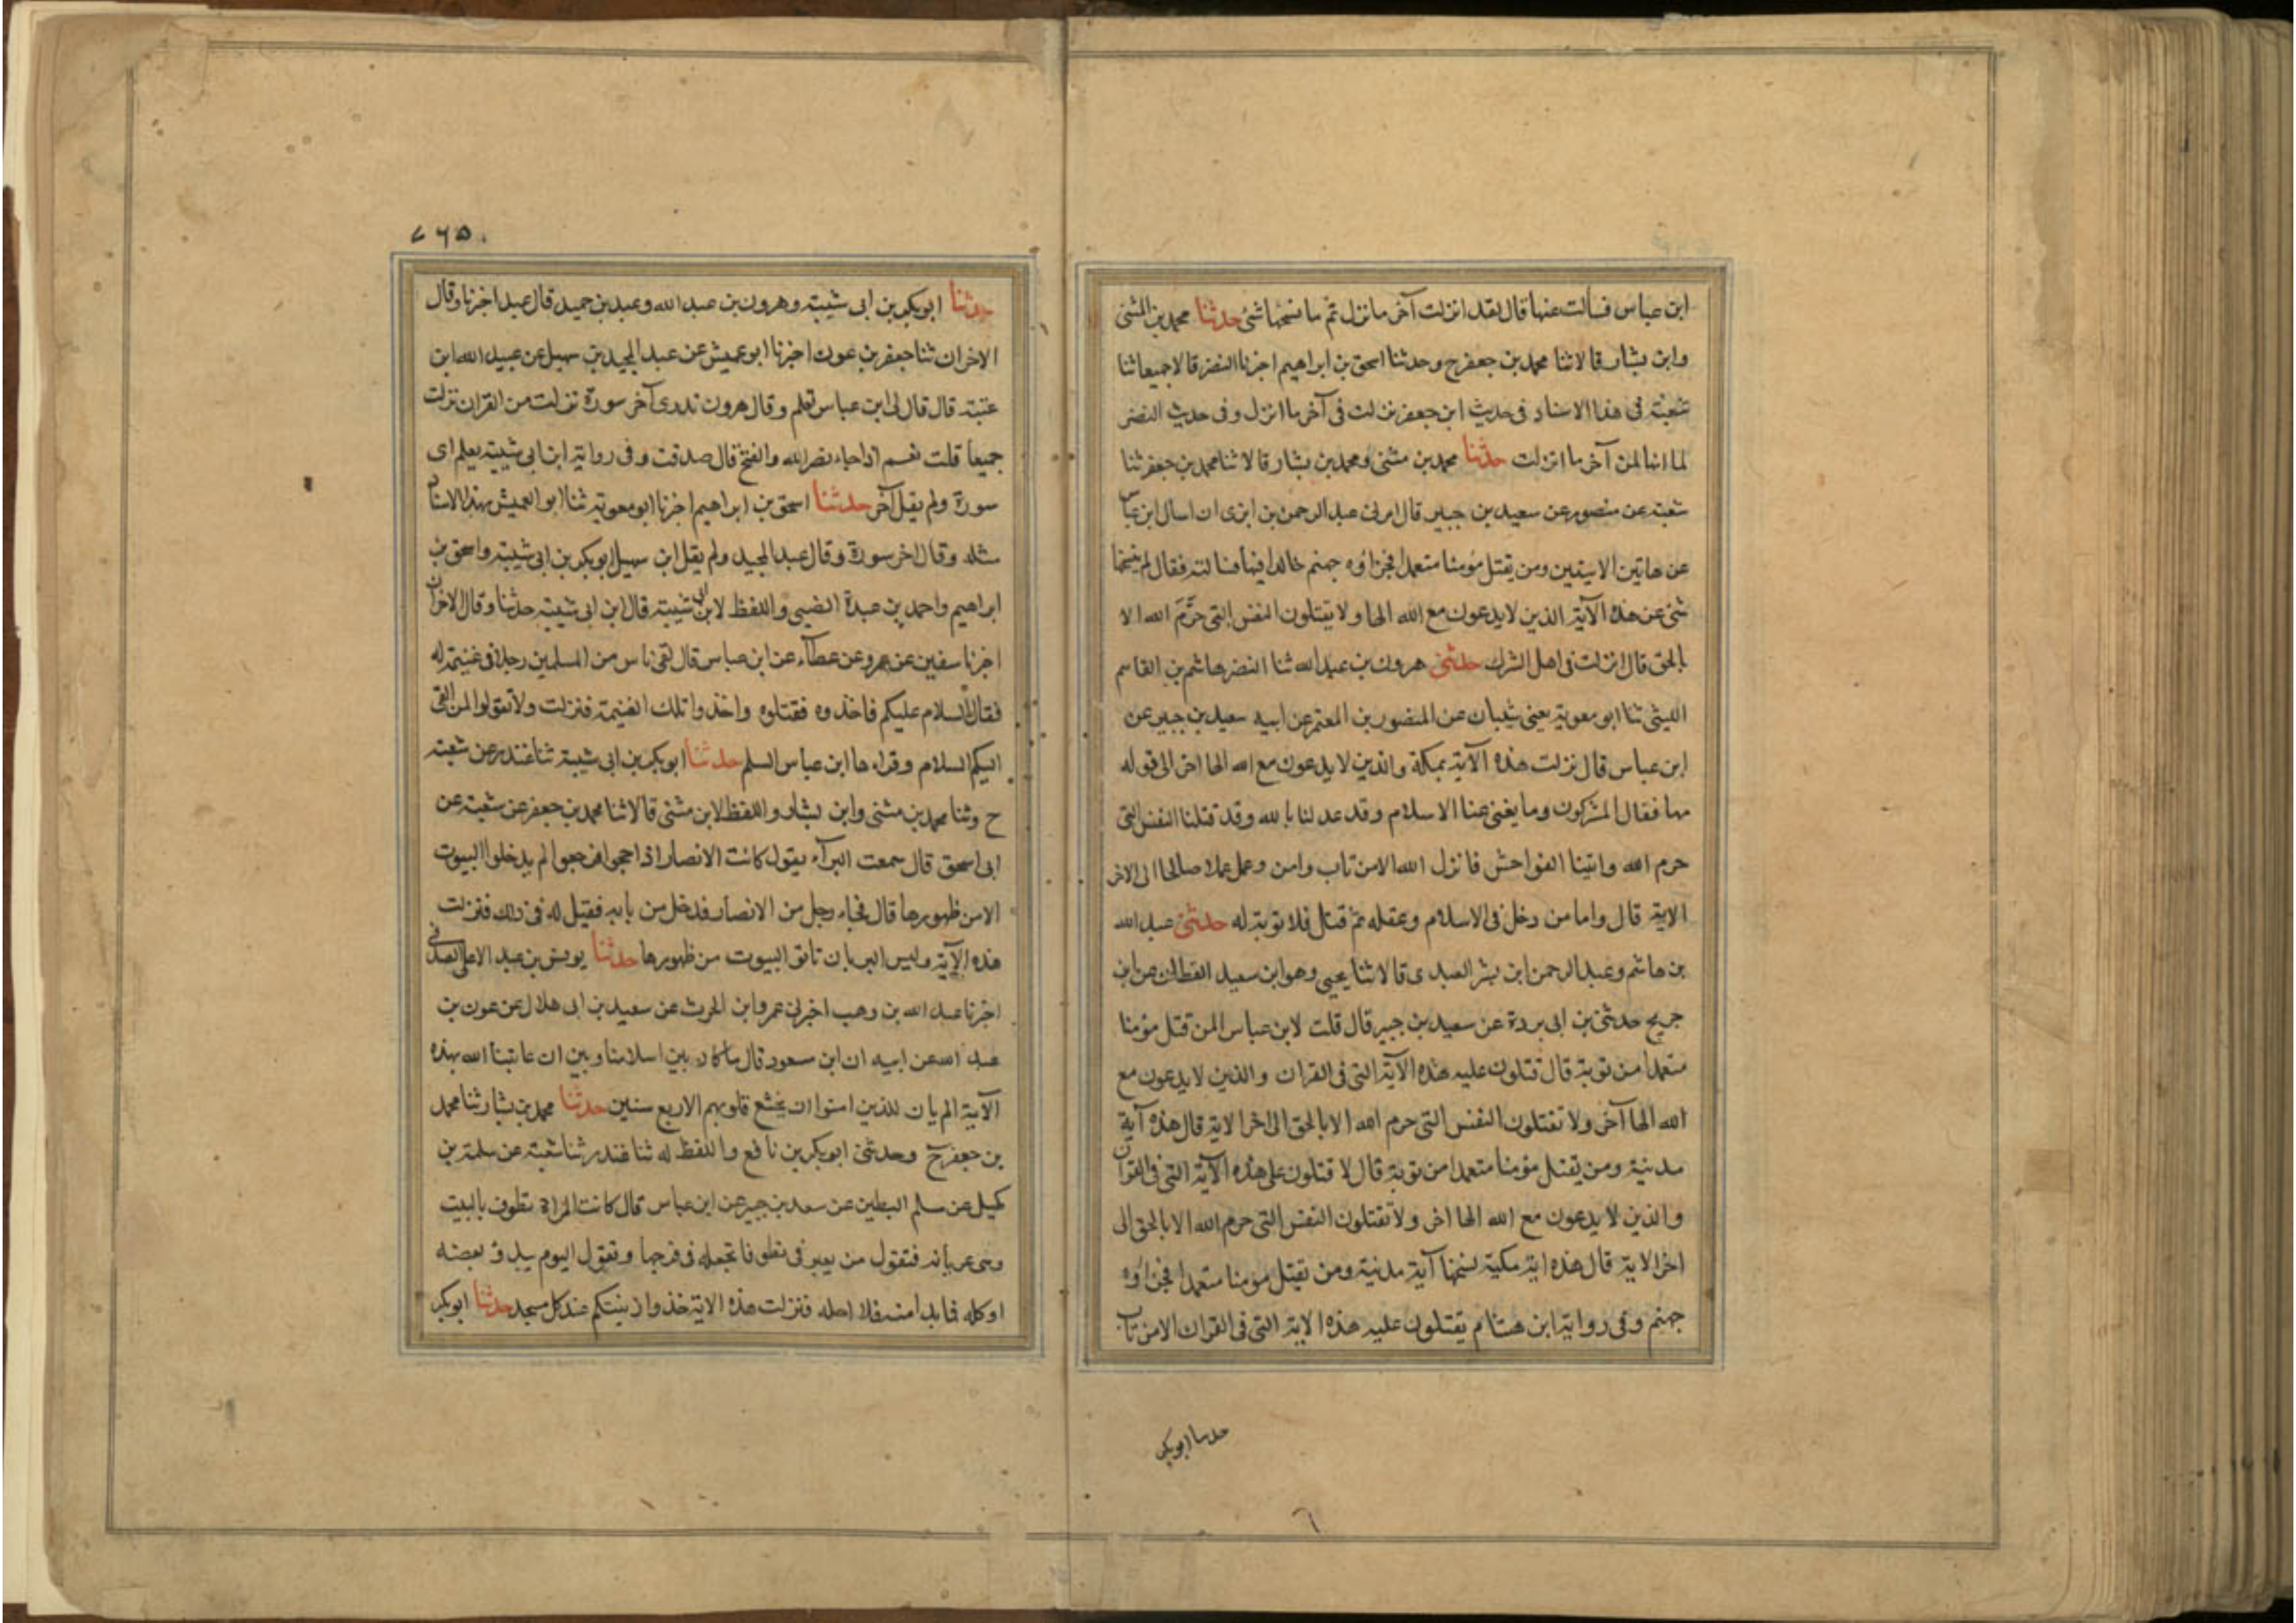 ابن عباس فسألت عنها قال لقد انزلت آخر ما نزل ثم ما نسخها شئ حدثنا محمد بن المثنى
وابن بشار قالا ثنا محمد بن جعفر ح وحدثنا اسحق بن ابراهيم اخبرنا النضر قالا جميعا ثنا
شعبة فى هذا الاسناد فى حديث ابن جعفر نزلت فى آخر ما انزل وفى حديث النضر
لما انها لمن آخر ما انزلت حدثنا محمد بن مثنى ومحمد بن بشار قالا ثنا محمد بن جعفر ثنا
شعبة عن منصور عن سعيد بن جبير قال امرنى عبد الرحمن بن ابزى ان اسال ابن عباس
عن هاتين الايتين ومن يقتل مؤمنا متعمدا فجزاؤه جهنم خالدا فيها فسالته فقال لم ينسخها
شئ عن هذه الآية الذين لا يدعون مع الله الها ولا يقتلون النفس التى حرّم الله الا
بالحق قال انزلت فى اهل الشرك حدثنى هرون بن عبد الله ثنا النضر هاشم بن القاسم
الليثى ثنا ابو معوية يعنى شيبان عن المنصور بن المعتمر عن ابيه سعيد بن جبير عن
ابن عباس قال نزلت هذه الآية بمكة والذين لا يدعون مع الله الها اخر الى قوله
مها فقال المشركون وما يغنى عنا الاسلام وقد عدلنا بالله وقد قتلنا النفس التى
حرم الله واتينا الفواحش فانزل الله الا من تاب وامن وعمل عملا صالحا الى الاخر
الاية قال واما من دخل فى الاسلام وعقله ثم قتل فلا توبة له حدثنى عبد الله
بن هاشم وعبد الرحمن ابن بشر العبدى قالا ثنا يحيى وهو ابن سعيد القطان عن ابن
جريح حدثنى بن ابى بردة عن سعيد بن جبير قال قلت لابن عباس المن قتل مؤمنا
متعمدا من توبة قال فتلون عليه هذه الآية التى فى القران والذين لا يدعون مع
الله الها آخر ولا تقتلون النفس التى حرم الله الا بالحق الى اخر الاية قال هذه آية
مدنية ومن يقتل مؤمنا متعمدا من توبة قال لا فتلون على هذه الآية التى فى القران
والذين لا يدعون مع الله الها اخر ولا تقتلون النفس التى حرم الله الا بالحق الى
اخر الاية قال هذه اية مكية نسخها آية مدنية ومن يقتل مومنا متعمدا فجزاؤه
جهنم وفى رواية ابن هشام يقتلون عليه هذه الاية التى فى القران الا من تاب
حدثنا ابوبكر
٧٦٥
حدثنا ابوبكر بن ابى شيبة وهرون بن عبد الله وعبد بن حميد قال عبد اخبرنا وقال
الاخران ثنا جعفر بن عون اخبرنا ابو عميس عن عبد المجيد بن سهيل عن عبيد الله ابن
عتبة قال قال لى ابن عباس تعلم وقال هرون تدرى آخر سورة نزلت من القران نزلت
جميعا قلت نعم اذا جاء نصر الله والفتح قال صدقت وفى رواية ابن ابى شيبة يعلم اى
سورة ولم يقل آخر حدثنا اسحق بن ابراهيم اخبرنا ابو معوية ثنا ابو العميس بهذا الاسناد
مثله وقال اخر سورة وقال عبد المجيد ولم يقل ابن سهيل ابوبكر بن ابى شيبة واسحق بن
ابراهيم واحمد بن عبدة الضبى واللفظ لابن ابى شيبة قال ابن ابى شيبة حدثنا وقال الاخران
اخبرنا سفين عن عمرو عن عطآء عن ابن عباس قال لقى ناس من المسلمين رجلا فى غنيمة له
فقال السلام عليكم فاخذوه فقتلوه واخذوا تلك الغنيمة فنزلت ولا تقولوا لمن القى
اليكم السلام وقراءها ابن عباس السلم حدثنا ابوبكر بن ابى شيبة ثنا غندر عن شعبة
ح وثنا محمد بن مثنى وابن بشار واللفظ لابن مثنى قالا ثنا محمد بن جعفر عن شعبة عن
ابى اسحق قال سمعت البرآء يقول كانت الانصار اذا حجوا فرجعوا لم يدخلوا البيوت
الا من ظهورها قال فجاء رجل من الانصار فدخل من بابه فقيل له فى ذلك فنزلت
هذه الآية وليس البر بان تاتوا البيوت من ظهورها حدثنا يونس بن عبد الاعلى الصدفى
اخبرنا عبد الله بن وهب اخبرنى عمرو ابن الحرث عن سعيد بن ابى هلال عن عون بن
عبد الله عن ابيه ان ابن مسعود قال ما كان بين اسلامنا وبين ان عاتبنا الله بهذه
الآية الم يان للذين امنوا ان تخشع قلوبهم الا اربع سنين حدثنا محمد بن بشار ثنا محمد
بن جعفر ح وحدثنى ابوبكر بن نافع واللفظ له ثنا غندر ثنا شعبة عن سلمة بن
كهيل عن مسلم البطين عن سعيد بن جبير عن ابن عباس قال كانت المراة تطوف بالبيت
وهى عريانة فتقول من يعير فى تطوفا تجعله فى فرجها وتقول اليوم يبدو بعضه
او كله فما بدا منه فلا احله فنزلت هذه الاية خذوا زينتكم عند كل مسجد حدثنا ابوبكر